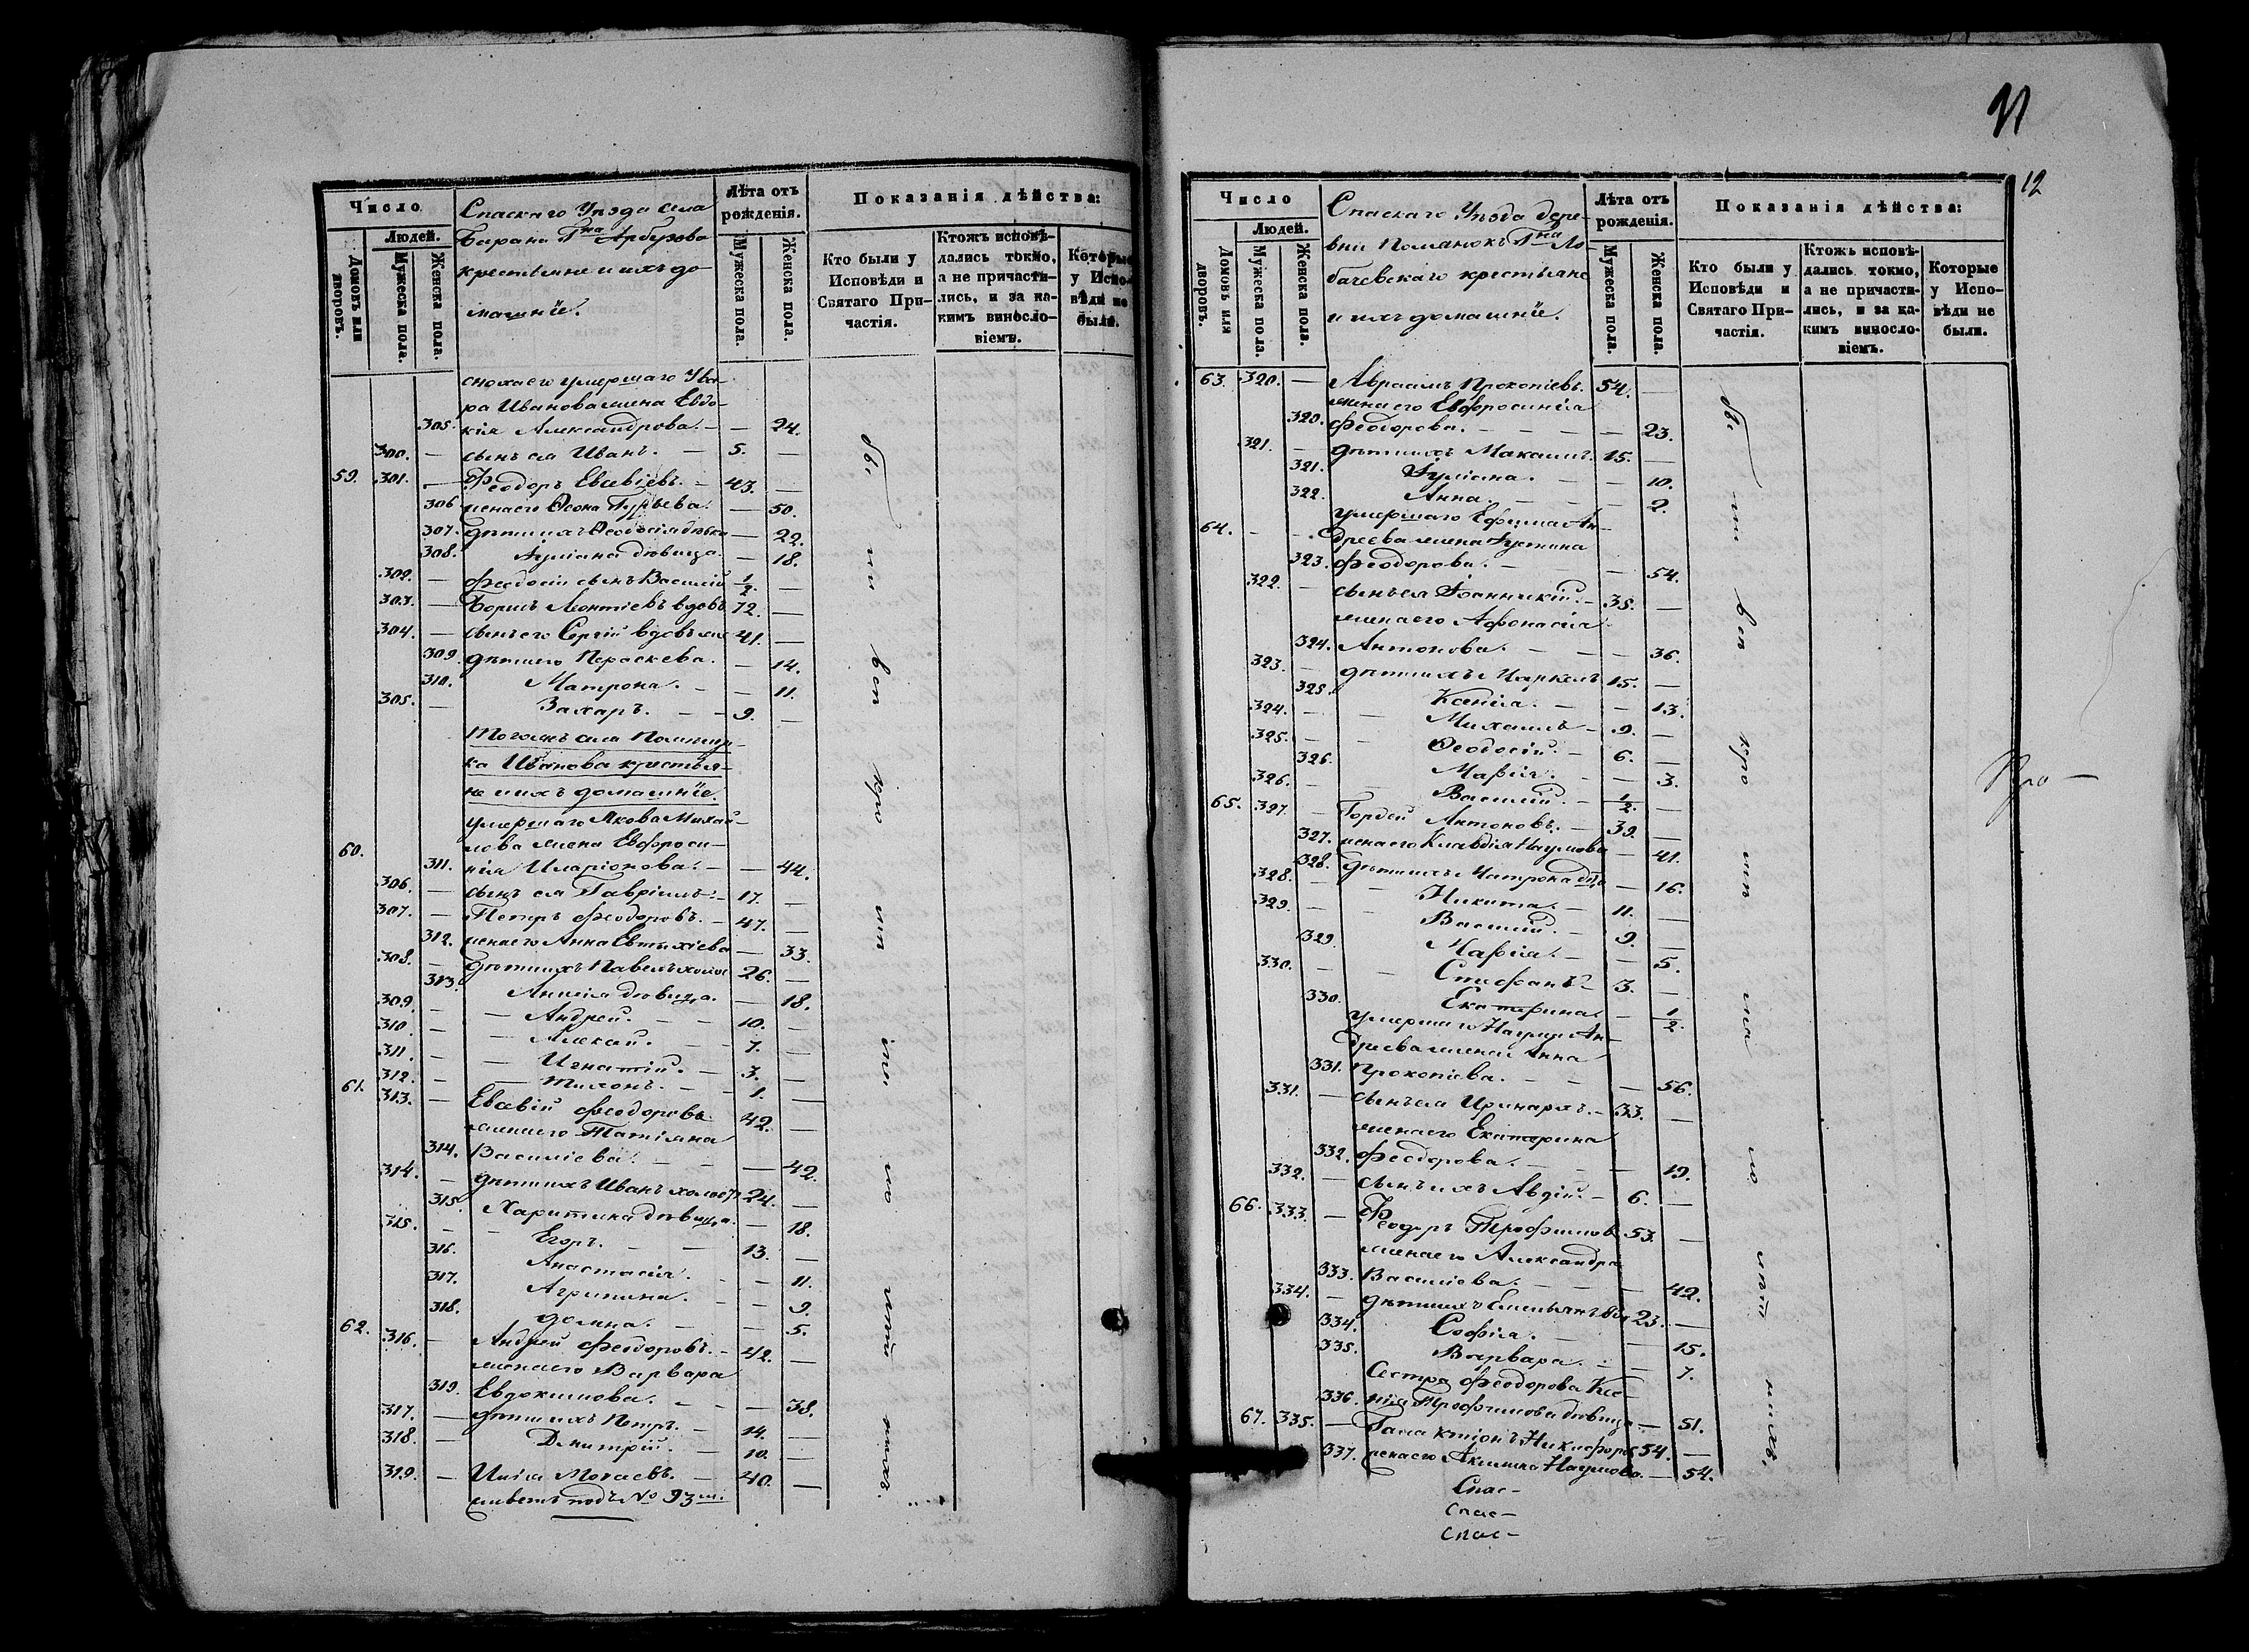 Число
Людей.
Домовъ или дворовъ.
Мужеска пола.
Женска пола.
Спаскаго Уѣзда села
Барана Гна Арбузова
крестьяне и ихъ до-
машніе.
Лѣта отъ рожденія.
Мужеска пола.
Женска пола.
Показанія дѣйства:
Кто были у Исповѣди и Святаго Причастія.
Ктожъ исповѣдались токмо, а не причастились, и за какимъ винословіемъ.
Которые у Исповѣди не были.
сноха его умершаго Ува-
ра Иванова жена Евдо-
305. кія Александрова. — — 24.
300. — сынъ ея Иванъ. — 5. —
59. 301. — Феодоръ Евсевіевъ. — 43. —
306 жена его Ѳеона Гурьева. — 50.
307. дѣти ихъ Ѳеодосія дѣвка — 22.
308. Іуліана дѣвица. — 18.
302. — Феодосіи сынъ Василій 1/2 —
303. — Борисъ Леонтіевъ вдовъ 72. —
304. — сынъ его Сергій вдовъ 41. —
309. дѣти его Параскева. — 14.
310. Матрона. — — 11.
305. — Захаръ. — — 9. —
Того жъ села Помѣщи-
ка Иванова крестья-
не и ихъ домашніе.
умершаго Якова Михай-
60. лова жена Евфроси-
311. нія Иларіонова. — — 44.
306. — сынъ ея Гавріилъ. — 17. —
307. — Петръ Феодоровъ. — 47. —
312. жена его Анна Евтихіева — 33.
308. — дѣти ихъ Павелъ холос 26. —
313. Анисія дѣвица. — 18.
309. — — Андрей. — — 10. —
310. — — Алексій. — — 7. —
311. — — Игнатій. — 3. —
312. — — Тихонъ. — — 1. —
61. 313. — Евсевій Феодоровъ 42. —
жена его Татіяна
314. Василіева. — — — 42.
314. — дѣти ихъ Иванъ холост 24. —
315. Харитина дѣвица. — 18.
315. — — Егоръ. — — 13. —
316. Анастасія. — — 11.
317. Агрипина. — — 9.
318. Домна. — — 5.
62. 316. — Андрей Феодоровъ. — 42. —
жена его Варвара
319. Евдокимова. — — — 38.
317. — дѣти ихъ Петръ. — 14. —
318. — Димитрій. — 10. —
319. — Илія Мокіевъ. — 40. —
живетъ подъ № 93
бы ли всп кро ил ли ло ихъ.
11
12
Число
Людей.
Домовъ или дворовъ.
Мужеска пола.
Женска пола.
Спаскаго Уѣзда дере-
вни Полянокъ Гна Ло
бачевскаго крестьяне
и ихъ домашніе.
Лѣта отъ рожденія.
Мужеска пола.
Женска пола.
Показанія дѣйства:
Кто были у Исповѣди и Святаго Причастія.
Ктожъ исповѣдались токмо, а не причастились, и за какимъ винословіемъ.
Которые у Исповѣди не были.
63. 320. — Авраамъ Прокопіевъ. 54. —
жена его Евфросинія
320. Феодорова. — — — — 23.
321. — дѣти ихъ Максимъ. 15. —
321. Іуліана. — — 10.
322. Анна. — — — 2.
64. — — умершаго Ефима Ан-
дреева жена Іустина
323. Феодорова. — — — 54.
322. — сынъ ея Іоанникій. — 35. —
жена его Афонасія
324. Антонова. — — — 36.
323. — дѣти ихъ Маркелъ 15. —
325. Ксенія. — — 13.
324. — — Михаилъ — 9. —
325. — — Ѳеодосій. — 6. —
326. Марія. — — 3.
326. — — Василій. — 1/2. —
65. 327. — Гордей Антоновъ. — 39. —
327. жена его Клавдія Наумова — 41.
328. дѣти ихъ Матрона дѣв — 16.
328. — — Никита. — 11. —
329. — — Василій. — 9. —
329. Марія. — — 5.
330. — — Стефанъ 3. —
330. Екатерина. — 1/2.
умершаго Наума Ан-
дреева жена Анна
331. Прокопіева. — — — 56.
331. — сынъ ея Иринархъ. — 33. —
жена его Екатерина
332. Феодорова. — — — 19.
332. — сынъ ихъ Авдій. — 6. —
66. 333. — Феодоръ Трофимов 53. —
жена его Александра
333. Василіева. — — — 42.
334. — дѣти ихъ Емельянъ 23. —
334. Софія. — — 15.
335. Варвара. — — 7.
Сестра Феодорова Ксе-
336. нія Трофимова дѣвица — 51.
67. 335. — Галактіонъ Никифоров 54. —
337. жена его Акилина Наумова. — 54.
Про —
Спас-
Спас-
Спас-